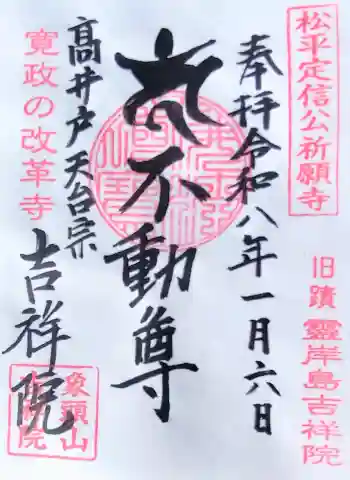 松平定信公祈願寺
旧蹟 靈岸島吉祥院
奉拝 令和八年一月六日
不動尊
髙井戸 天台宗
吉祥院
寛政の改革寺
象頭山